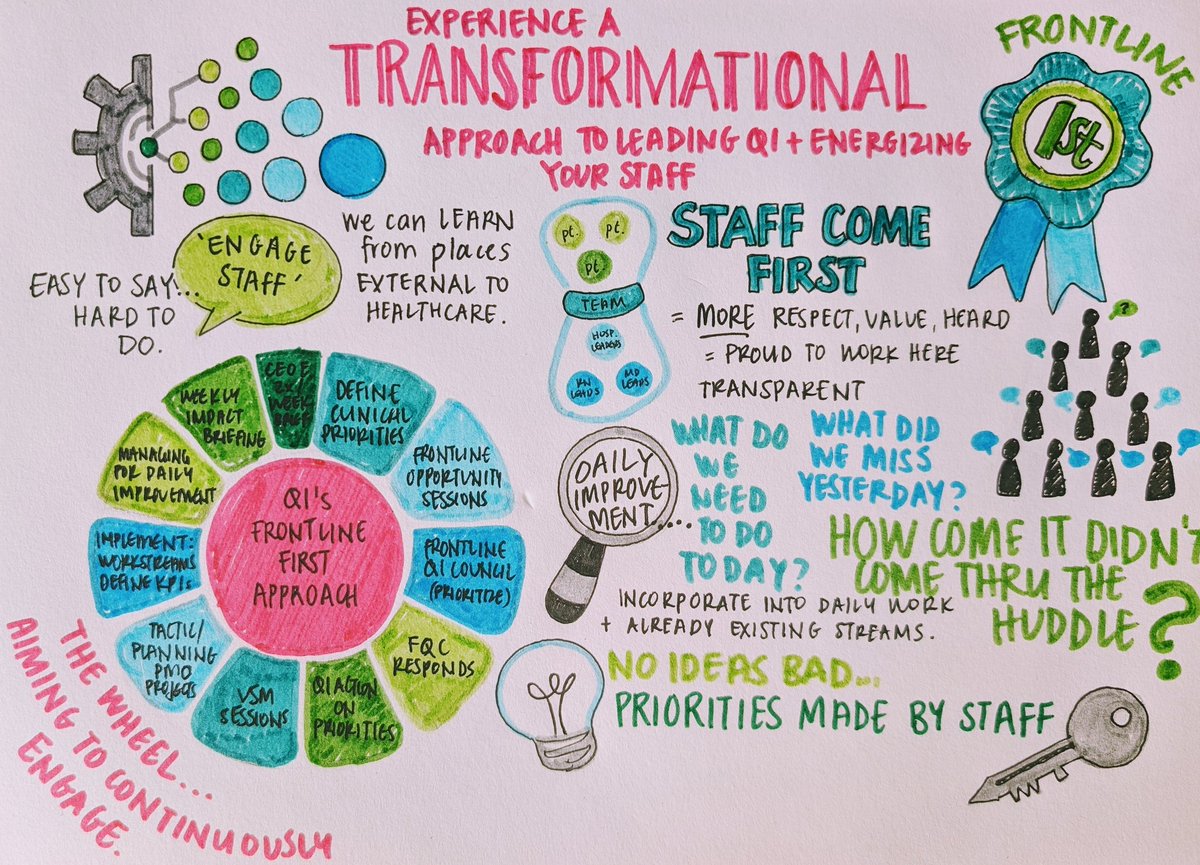 EXPERIENCE A
TRANSFORMATIONAL
APPROACH TO LEADING QI + ENERGIZING
YOUR STAFF
FRONTLINE
1st
'ENGAGE
STAFF'
EASY TO SAY...
HARD TO
DO.
we can LEARN
from places
EXTERNAL TO
HEALTHCARE.
pt.
pt.
pt.
TEAM
HOSP.
LEADERS
RN
LEADS
MD
LEADS
STAFF COME
FIRST
= MORE RESPECT, VALUE, HEARD
= PROUD TO WORK HERE
TRANSPARENT
?
QI's
FRONTLINE
FIRST
APPROACH
DEFINE
CLINICAL
PRIORITIES
FRONTLINE
OPPORTUNITY
SESSIONS
FRONTLINE
QI COUNCIL
(PRIORITIZE)
FQC
RESPONDS
QI ACTION
ON
PRIORITIES
VSM
SESSIONS
TACTIC/
PLANNING
PMO
PROJECTS
IMPLEMENT:
WORKSTREAMS
DEFINE KPIs
MANAGING
FOR DAILY
IMPROVEMENT
WEEKLY
IMPACT
BRIEFING
CEO
WEEK
THE WHEEL...
AIMING TO CONTINUOUSLY
ENGAGE.
DAILY
IMPROVE-
MENT.....
WHAT DO
WE
NEED
TO DO
TODAY?
WHAT DID
WE MISS
YESTERDAY?
HOW COME IT DIDN'T
COME THRU THE
HUDDLE?
INCORPORATE INTO DAILY WORK
+ ALREADY EXISTING STREAMS.
NO IDEAS BAD...
PRIORITIES MADE BY STAFF